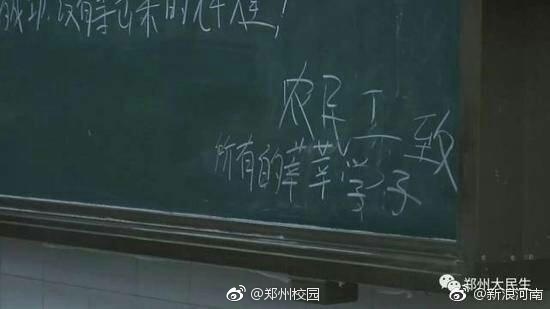 没有等出来的辉煌！
农民工致
所有的莘莘学子
郑州大民生
@郑州校园
@新浪河南